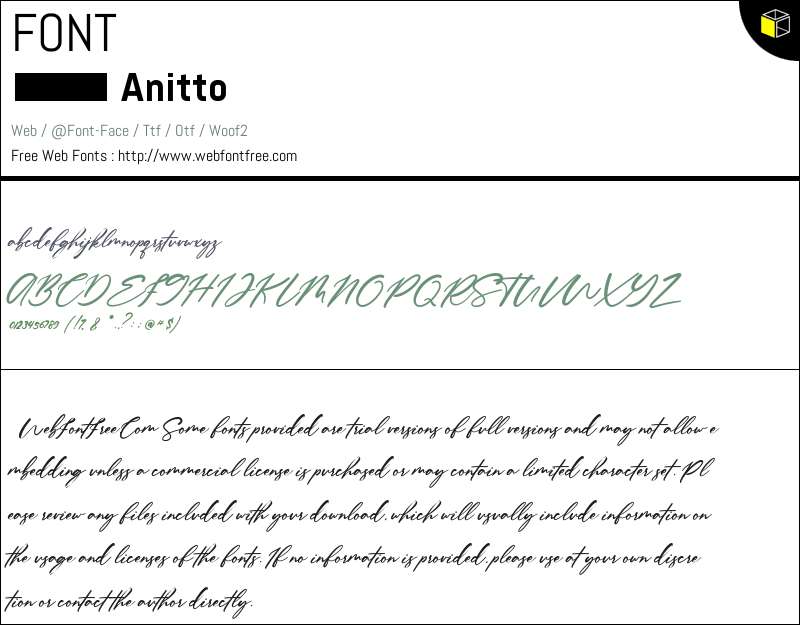 FONT
Anitto
Web / @Font-Face / Ttf / Otf / Woof2
Free Web Fonts : http://www.webfontfree.com
abcdefghijklmnopqrstuvwxyz
ABCDEFGHIJKLMNOPQRSTUVWXYZ
0123456789 (!?, & * .,? : ; @ # $)
WebFontFree.Com Some fonts provided are trial versions of full versions and may not allow e
mbedding unless a commercial license is purchased or may contain a limited character set. Pl
ease review any files included with your download, which will usually include information on
the usage and licenses of the fonts. If no information is provided, please use at your own discre
tion or contact the author directly.